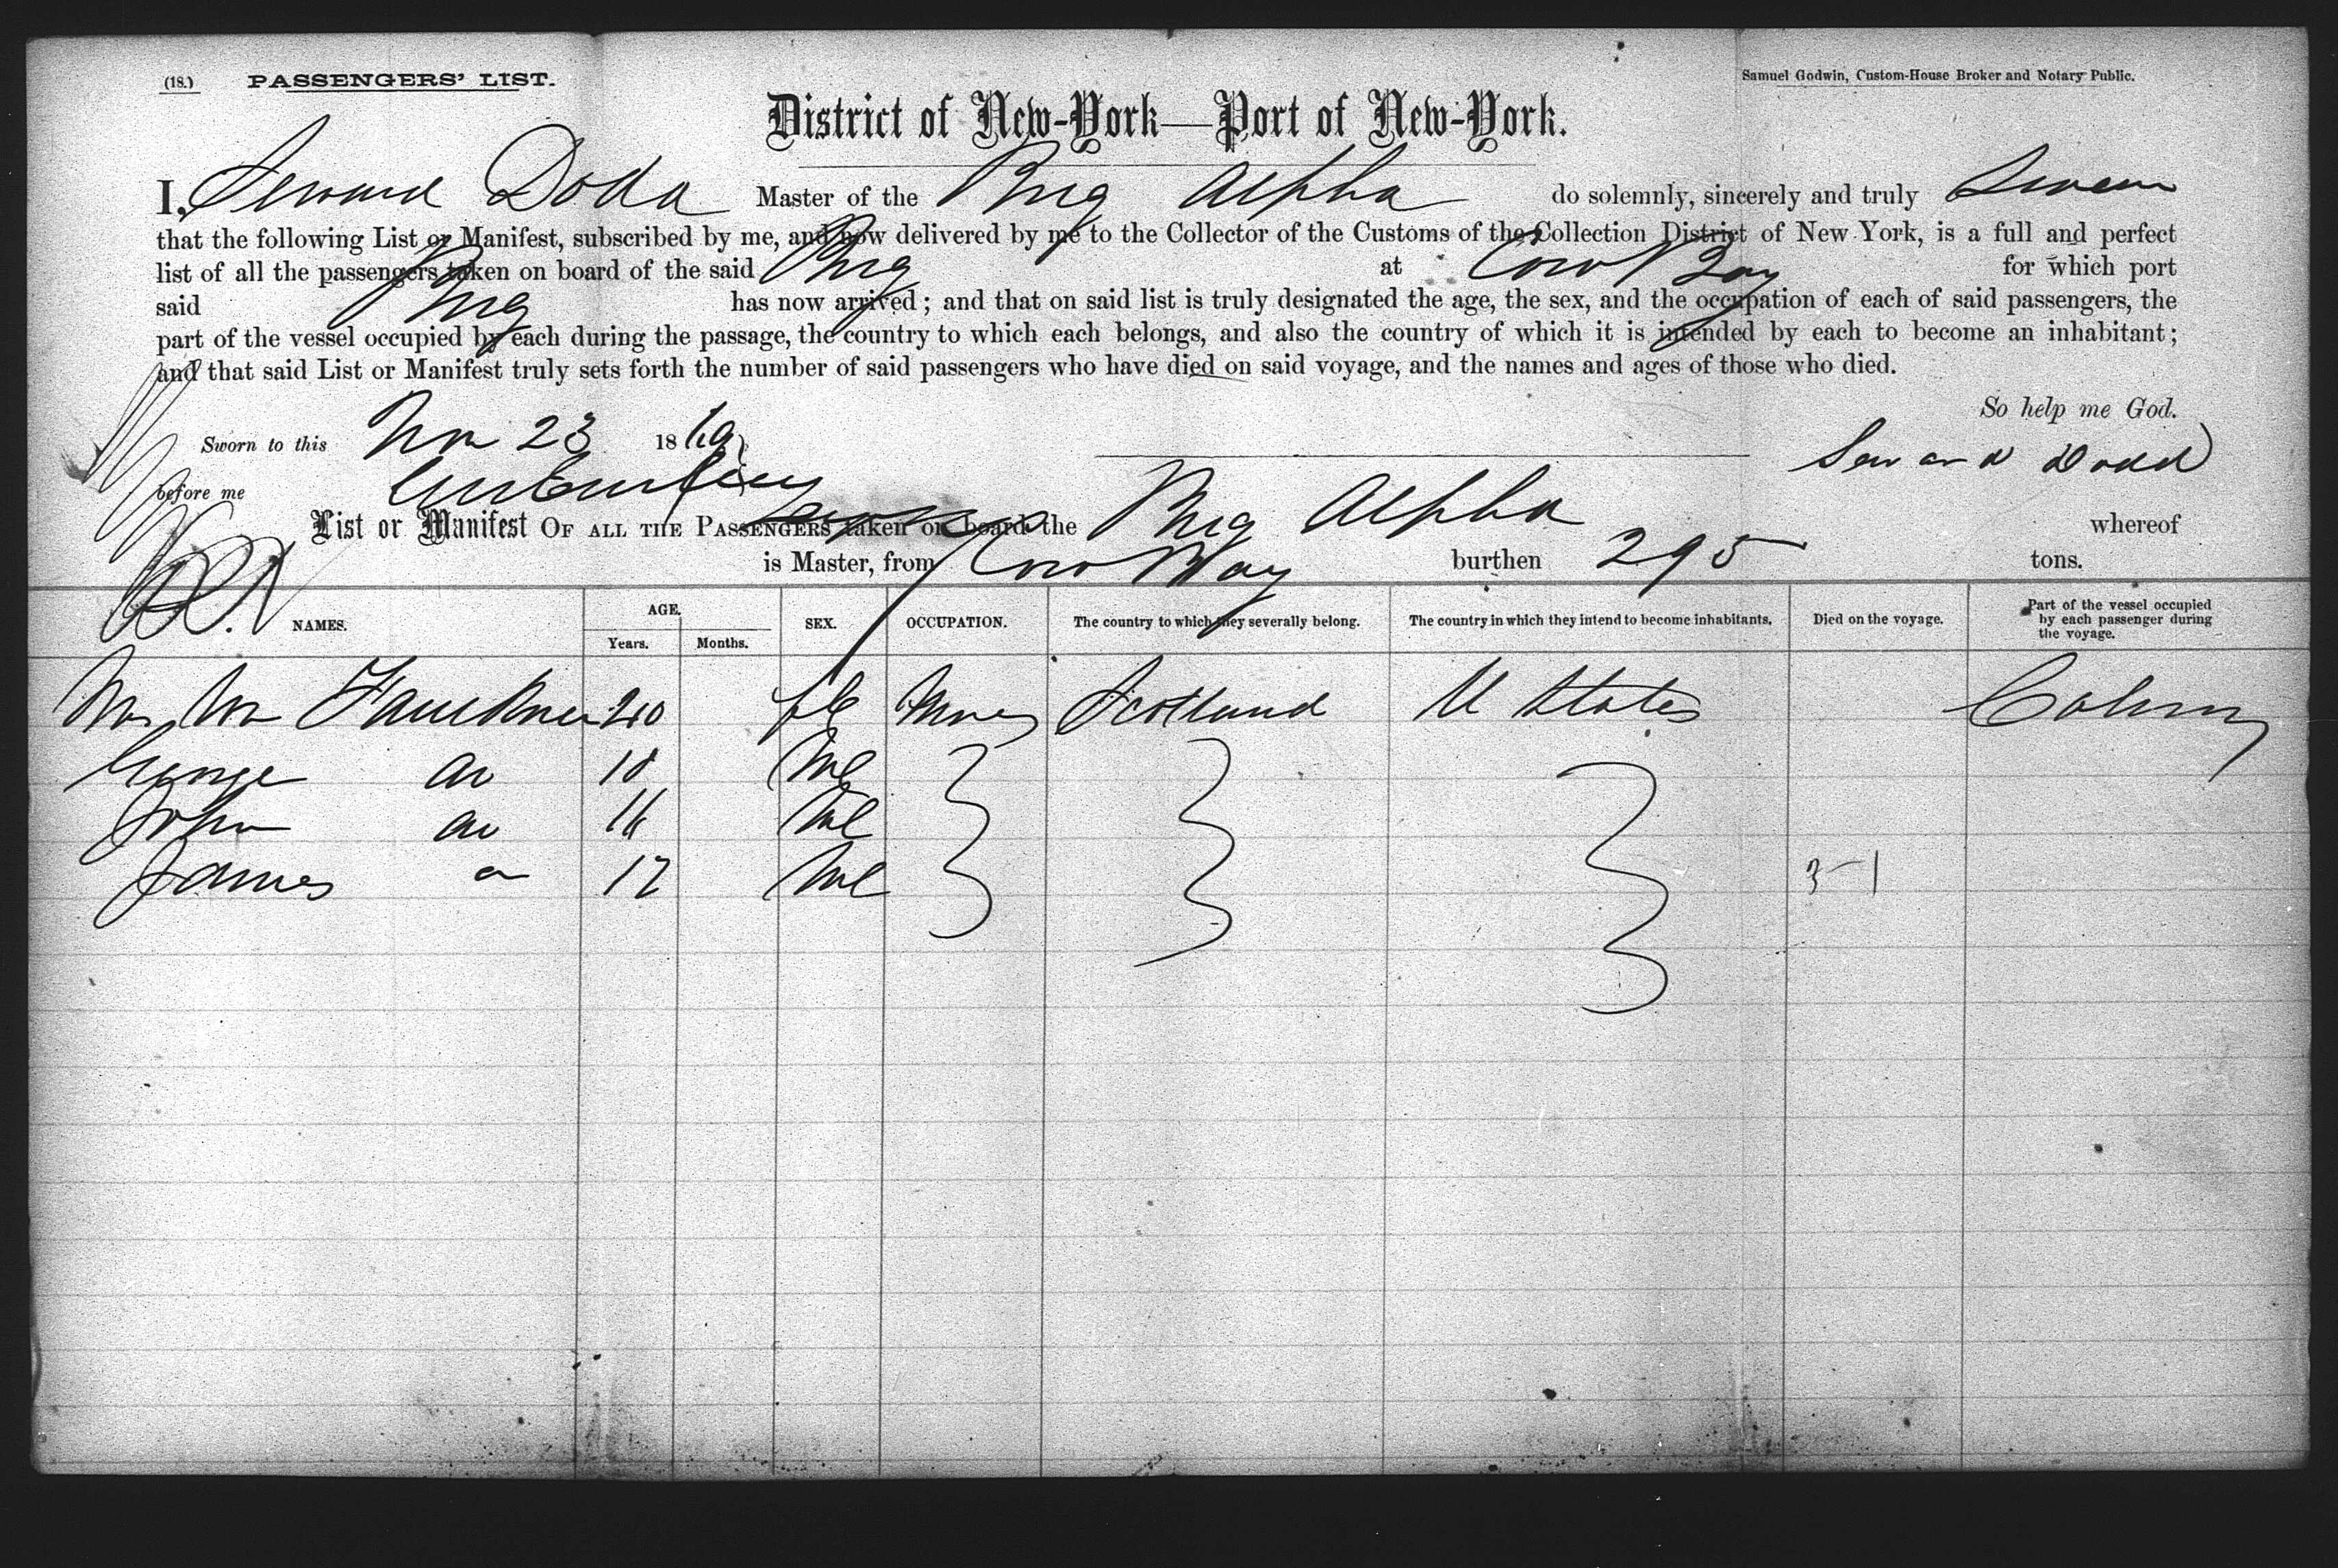 (18.) PASSENGERS' LIST. Samuel Godwin, Custom-House Broker and Notary Public.
District of New-York—Port of New-York.
I, Seward Dodd Master of the Brig Alpha do solemnly, sincerely and truly Swear
that the following List or Manifest, subscribed by me, and now delivered by me to the Collector of the Customs of the Collection District of New York, is a full and perfect
list of all the passengers taken on board of the said Brig at Cow Bay for which port
said Brig has now arrived; and that on said list is truly designated the age, the sex, and the occupation of each of said passengers, the
part of the vessel occupied by each during the passage, the country to which each belongs, and also the country of which it is intended by each to become an inhabitant;
and that said List or Manifest truly sets forth the number of said passengers who have died on said voyage, and the names and ages of those who died.
So help me God.
Sworn to this Nov 23 1869 Seward Dodd
before me
List or Manifest OF ALL THE PASSENGERS taken on board the Brig Alpha whereof
is Master, from Cow Bay burthen 295 tons.
NAMES. AGE. Years. Months. SEX. OCCUPATION. The country to which they severally belong. The country in which they intend to become inhabitants. Died on the voyage. Part of the vessel occupied by each passenger during the voyage.
Faulkner 40 fe Scotland U States Cabin
George do 18 Me
John do 16 Me
James do 12 Me 3-1